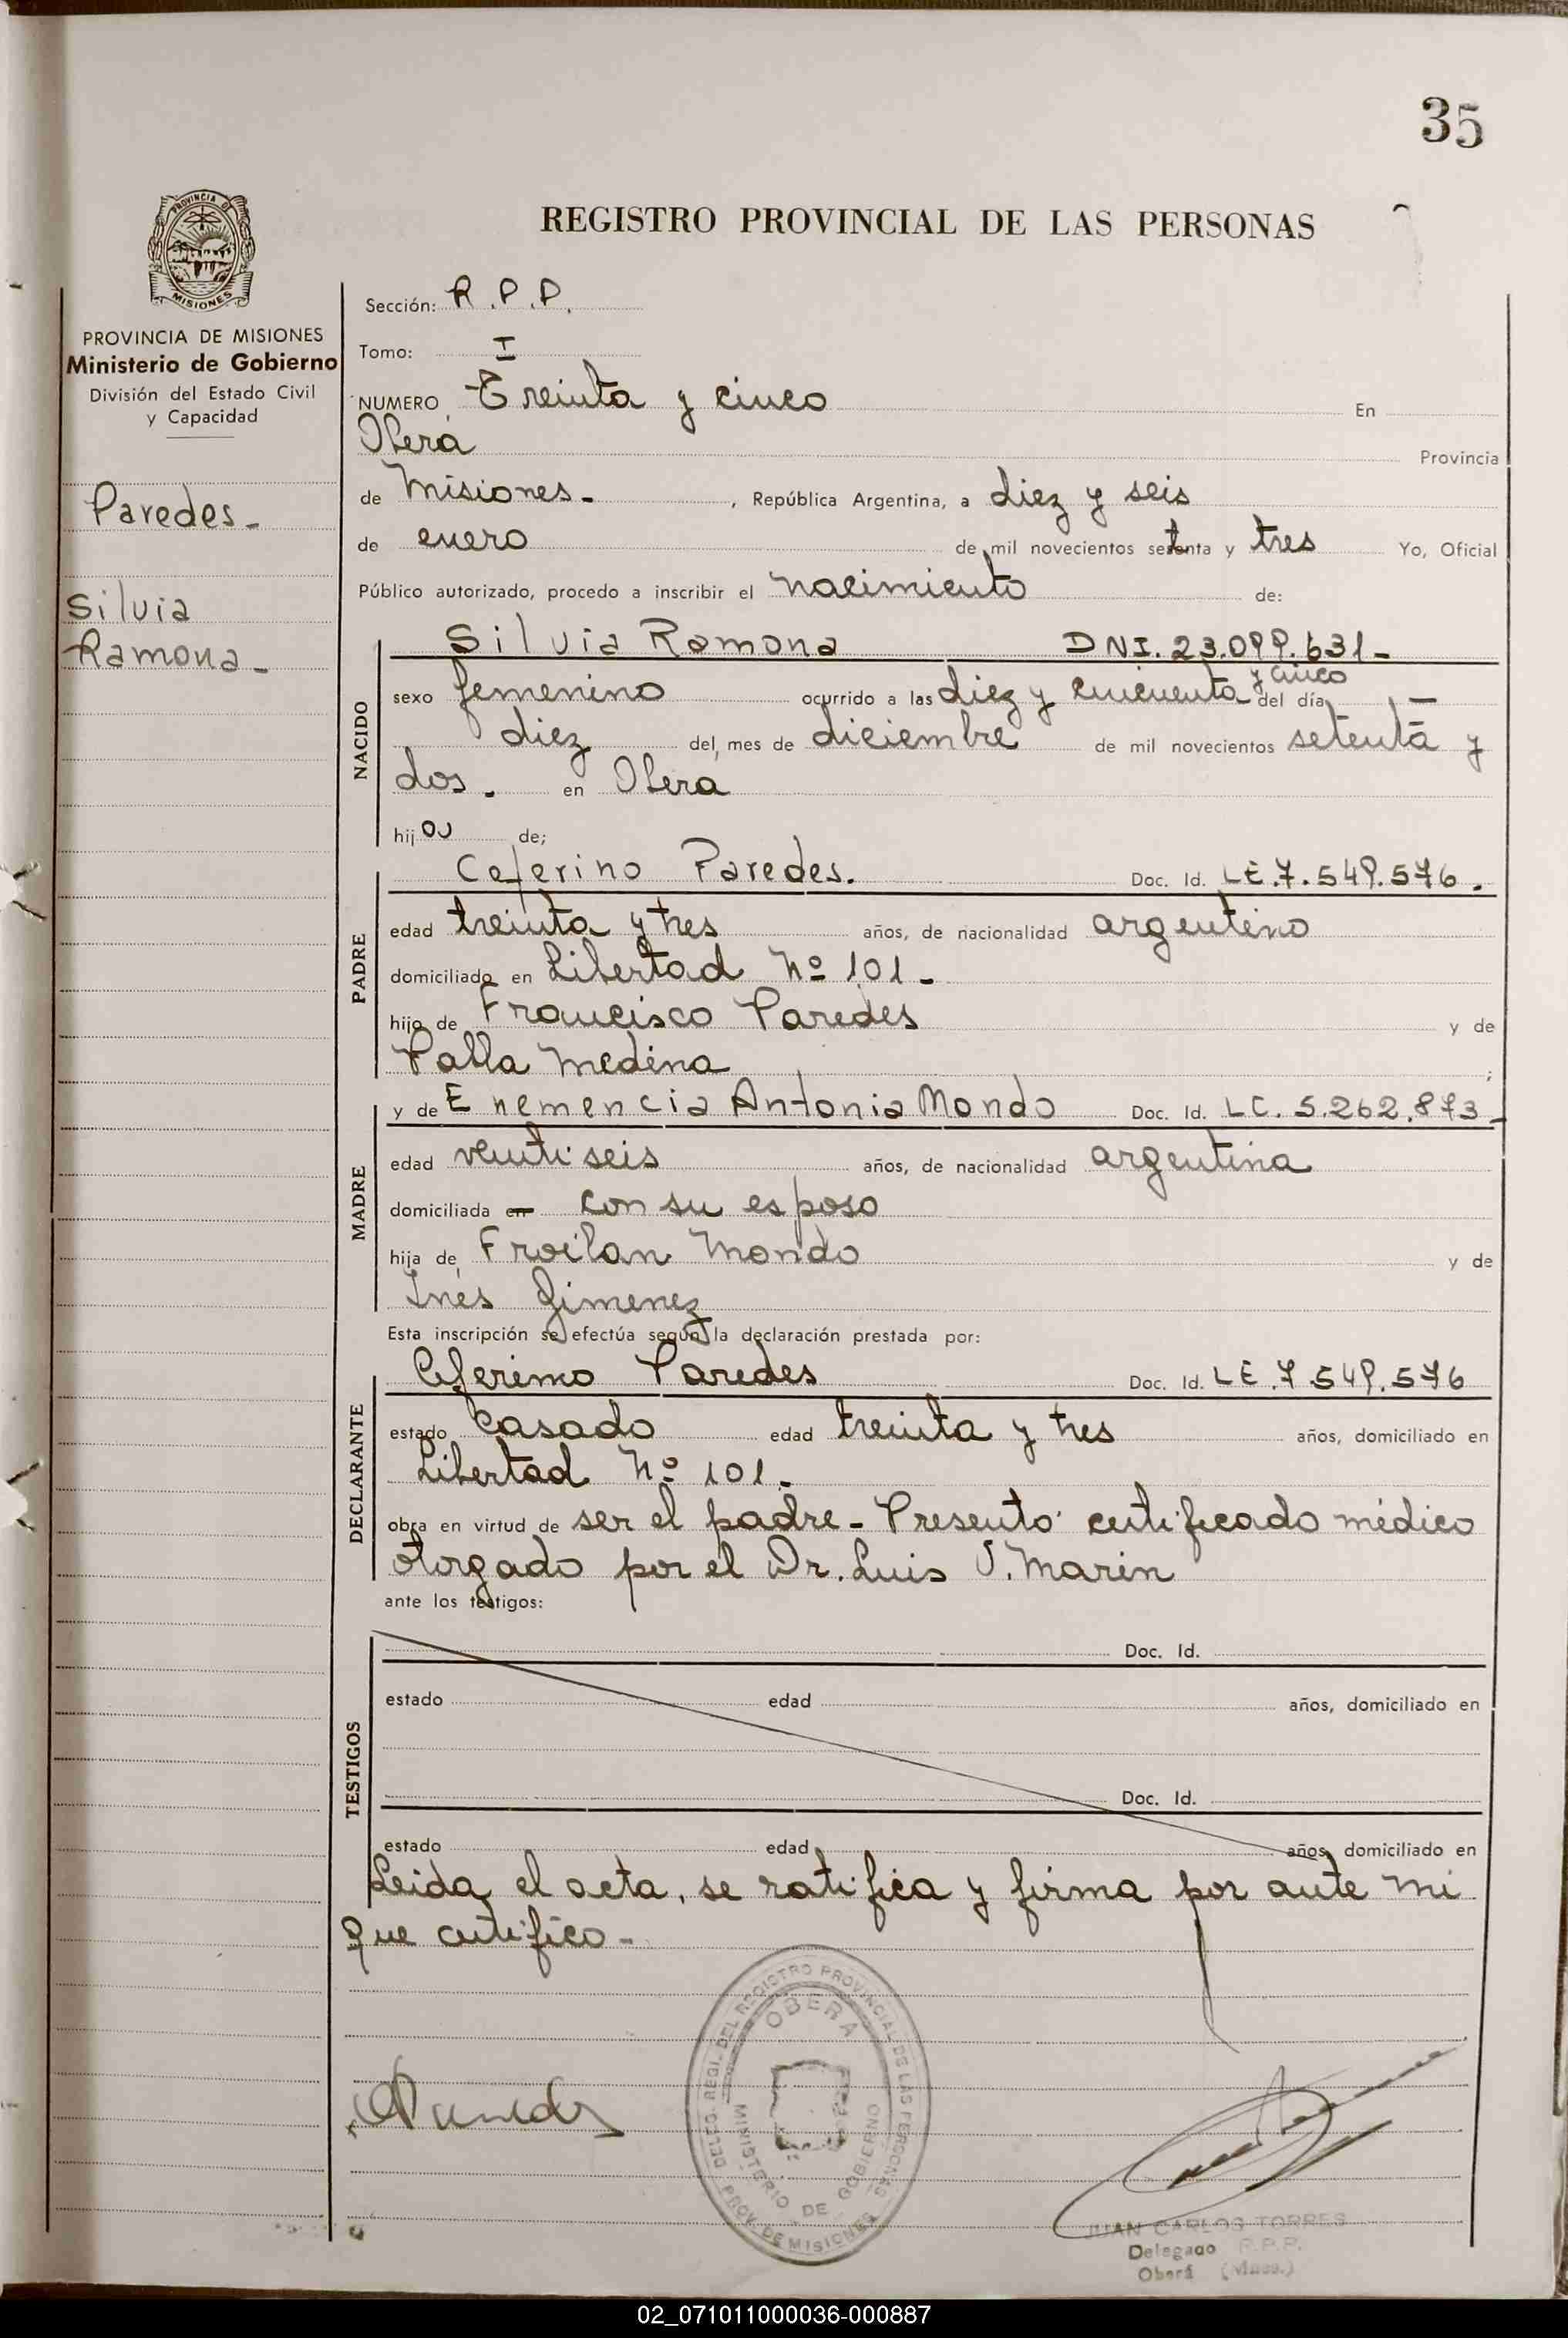 35
PROVINCIA DE
MISIONES
REGISTRO PROVINCIAL DE LAS PERSONAS
PROVINCIA DE MISIONES
Ministerio de Gobierno
División del Estado Civil
y Capacidad
Paredes.-
Silvia
Ramona.-
Sección: R.P.P.
Tomo: I
NUMERO Treinta y cinco En
Oberá Provincia
de Misiones.- , República Argentina, a diez y seis
de enero de mil novecientos setenta y tres Yo, Oficial
Público autorizado, procedo a inscribir el nacimiento de:
NACIDO
Silvia Ramona DNI. 23.099.631.-
sexo femenino ocurrido a las diez y cincuenta y cinco del día
diez del mes de diciembre de mil novecientos setenta y
dos. en Oberá
hija de;
PADRE
Ceferino Paredes. Doc. Id. LE.7.549.576.
edad treinta y tres años, de nacionalidad argentino
domiciliado en Libertad Nº 101.-
hijo de Francisco Paredes y de
Pabla Medina ;
MADRE
y de Enemencia Antonia Mondo Doc. Id. LC. 5.262.873.-
edad veinti seis años, de nacionalidad argentina
domiciliada en con su esposo
hija de Froilan Mondo y de
Inés Gimenez
Esta inscripción se efectúa según la declaración prestada por:
DECLARANTE
Ceferino Paredes Doc. Id. LE.7.549.576
estado Casado edad treinta y tres años, domiciliado en
Libertad Nº 101.-
obra en virtud de ser el padre.- Presentó certificado médico
otorgado por el Dr. Luis V. Marin
ante los testigos:
TESTIGOS
Doc. Id.
estado edad años, domiciliado en
Doc. Id.
estado edad años, domiciliado en
Leida el acta, se ratifica y firma por ante mi
que certifico.-
DELEG. REGI. DEL REGISTRO PROVINCIAL DE LAS PERSONAS
OBERA
MINISTERIO DE GOBIERNO
PROV. DE MISIONES
JUAN CARLOS TORRES
Delegado R.P.P.
Oberá (Mnes.)
02_071011000036-000887